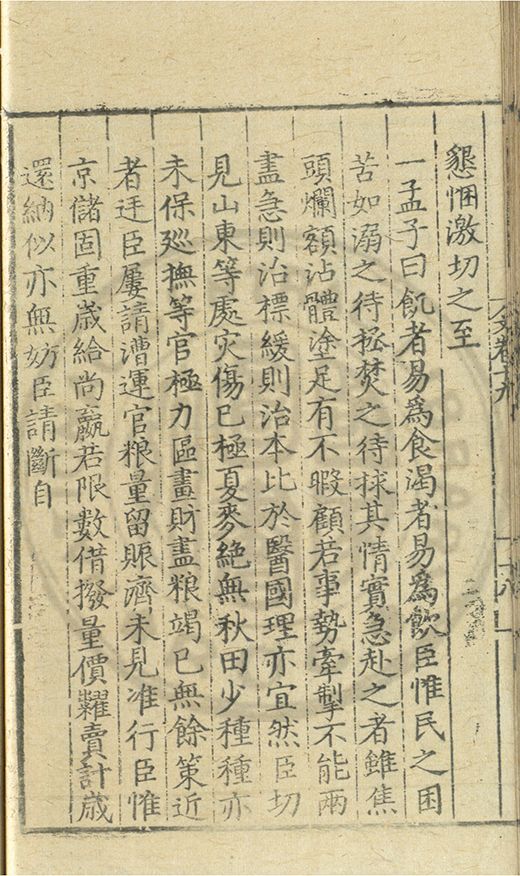 懇悃激切之至
一孟子曰飢者易爲食渴者易爲飲臣惟民之困
苦如溺之待拯焚之待捄其情實急赴之者雖焦
頭爛額沾體塗足有不暇顧若事勢牽掣不能兩
盡急則治標緩則治本比於醫國理亦宜然臣切
見山東等處灾傷已極夏麥絶無秋田少種種亦
未保廵撫等官極力區畫財盡粮竭已無餘策近
者玨臣屢請漕運官粮量留賑濟未見准行臣惟
京儲固重歲給尚贏若限數借撥量價糶賣計歲
還納似亦無妨臣請斷自